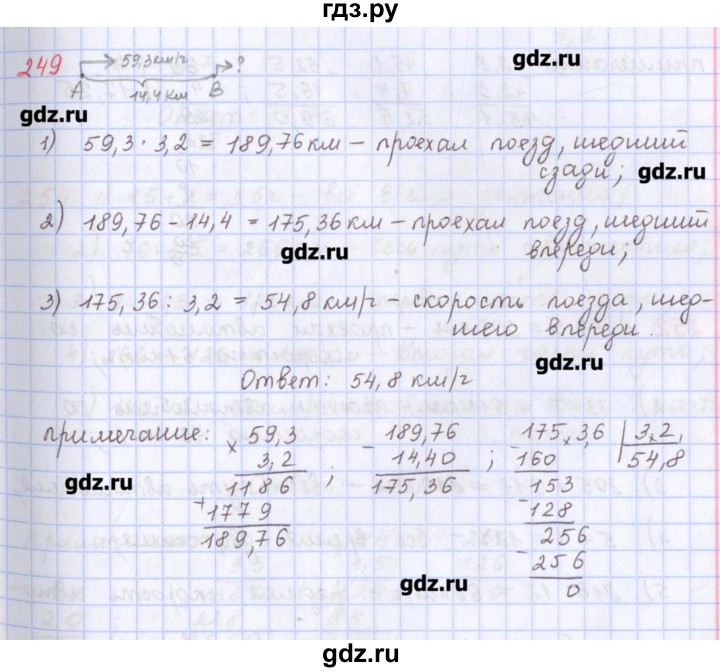 гдз.ру
249
59,3км/г
?
A
B
14,4 км
gdz.ru
gdz.ru
1) 59,3 · 3,2 = 189,76 км – проехал поезд, шедший
сзади;
gdz.ru
2) 189,76 – 14,4 = 175,36 км – проехал поезд, шедший
впереди;
gdz.ru
3) 175,36 : 3,2 = 54,8 км/г – скорость поезда, шед-
шего впереди.
gdz.ru
Ответ: 54,8 км/г
примечание: × 59,3
3,2
1186
+
1779
189,76
;
– 189,76
14,40
175,36
;
– 175,3,6
3,2
160
54,8
– 153
128
– 256
256
0
gdz.ru
gdz.ru
gdz.ru